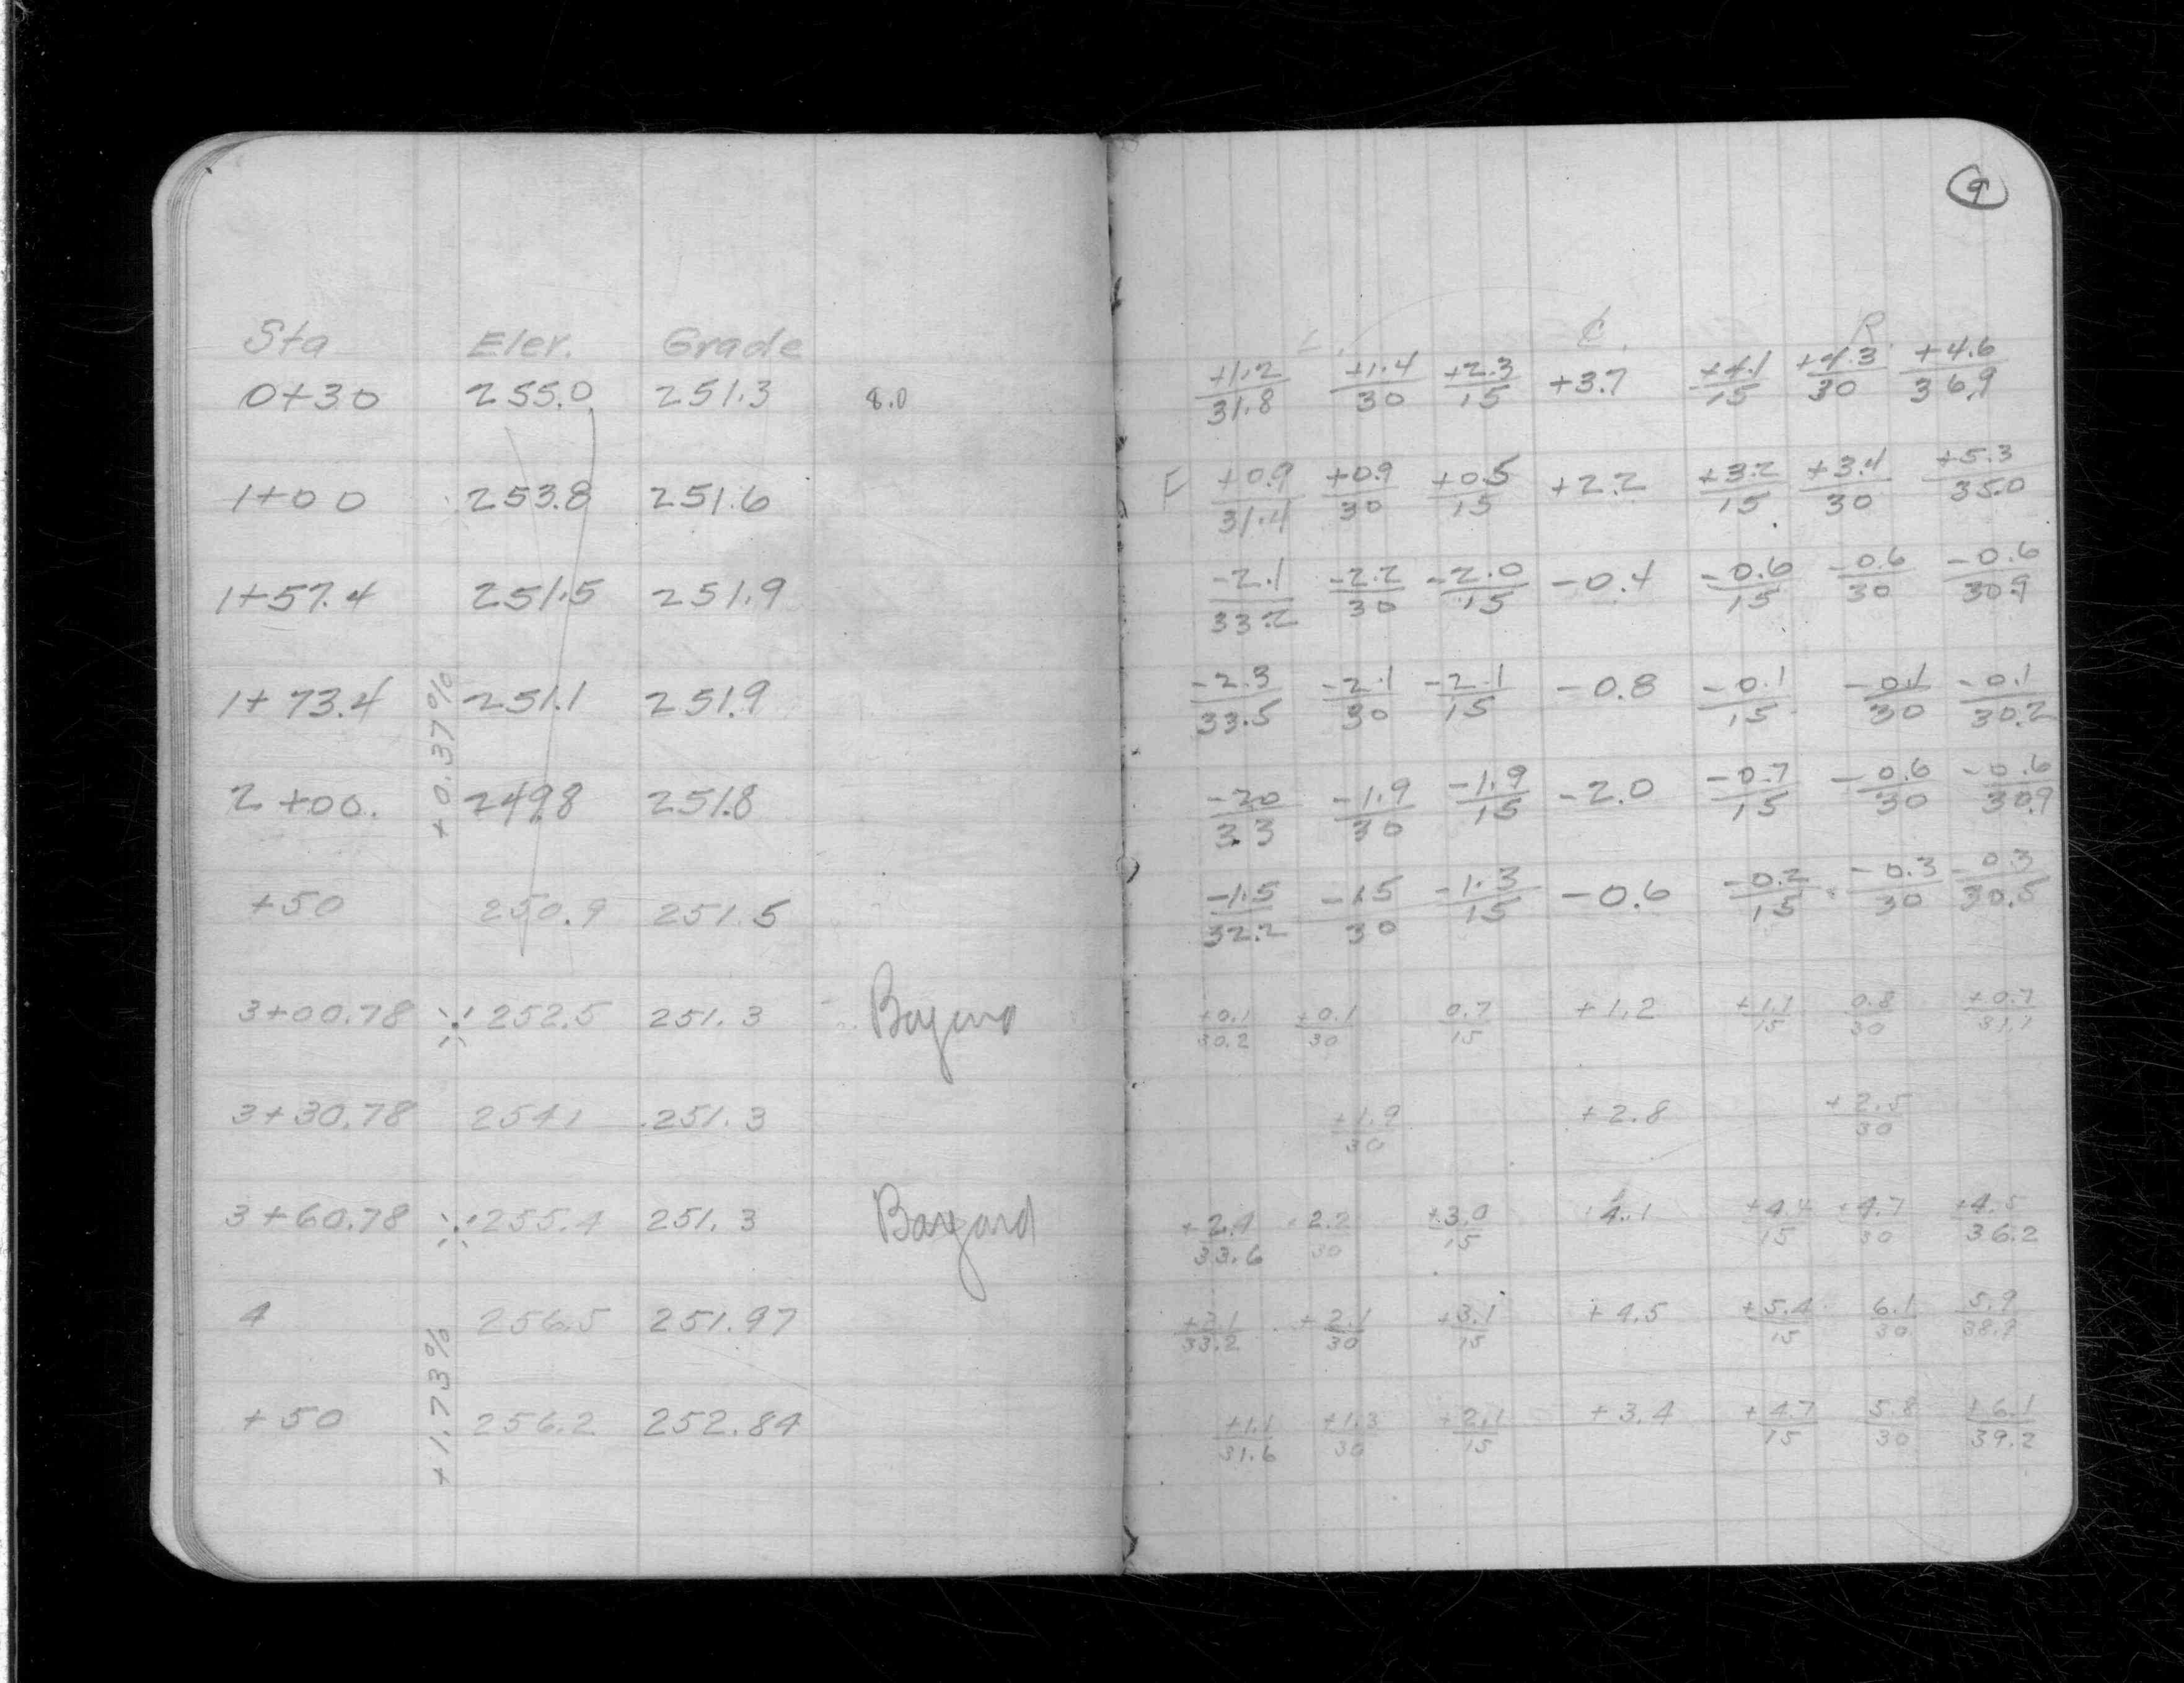 9
Sta Elev. Grade L. ₵. R.
0+30 255.0 251.3 8.0 +1.2/31.8 +1.4/30 +2.3/15 +3.7 +4.1/15 +4.3/30 +4.6/36.9
1+00 253.8 251.6 F +0.9/31.4 +0.9/30 +0.5/15 +2.2 +3.2/15 +3.4/30 +5.3/35.0
1+57.4 251.5 251.9 -2.1/33.2 -2.2/30 -2.0/15 -0.4 -0.6/15 -0.6/30 -0.6/30.9
1+73.4 251.1 251.9 -2.3/33.5 -2.1/30 -2.1/15 -0.8 -0.1/15 -0.1/30 -0.1/30.2
+0.37%
2+00. 249.8 251.8 -20/33 -1.9/30 -1.9/15 -2.0 -0.7/15 -0.6/30 -0.6/30.9
+50 250.9 251.5 -1.5/32.2 -1.5/30 -1.3/15 -0.6 -0.2/15 -0.3/30 -0.3/30.5
3+00.78 252.5 251.3 +0.1/30.2 +0.1/30 0.7/15 +1.2 +1.1/15 0.8/30 +0.7/31.1
3+30.78 254.1 251.3 +1.9/30 +2.8 +2.5/30
3+60.78 255.4 251.3 Bayard +2.4/33.6 2.2/30 +3.0/15 4.1 +4.4/15 +4.7/30 +4.5/36.2
4 256.5 251.97 33.2 +2.1/30 +3.1/15 +4.5 +5.4/15 6.1/30 5.9/38.9
+1.73%
+50 256.2 252.84 +1.1/31.6 +1.3/30 +2.1/15 +3.4 +4.7/15 5.8/30 +6.1/39.2